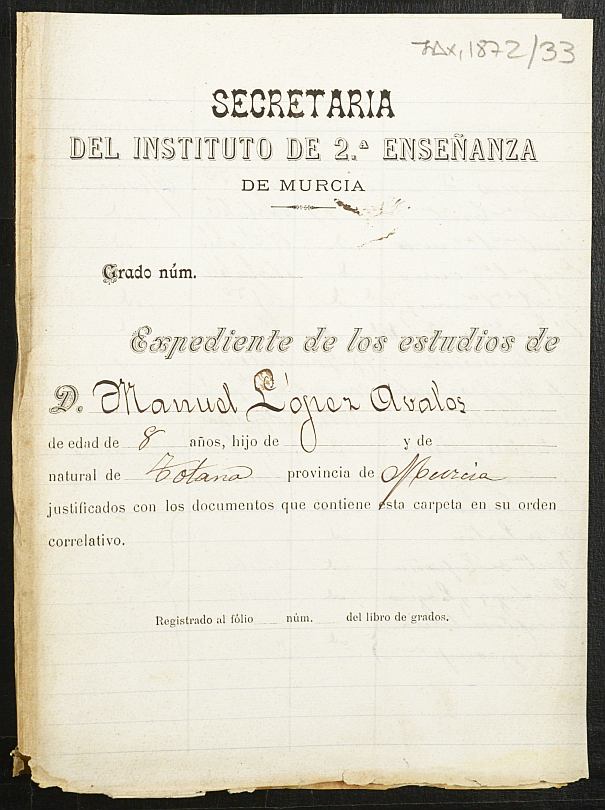 JAX, 1872/33
SECRETARIA
DEL INSTITUTO DE 2.ª ENSEÑANZA
DE MURCIA
Grado núm.
Expediente de los estudios de
D. Manuel López Avalos
de edad de 8 años, hijo de y de
natural de Totana provincia de Murcia
justificados con los documentos que contiene esta carpeta en su orden
correlativo.
Registrado al fólio núm. del libro de grados.